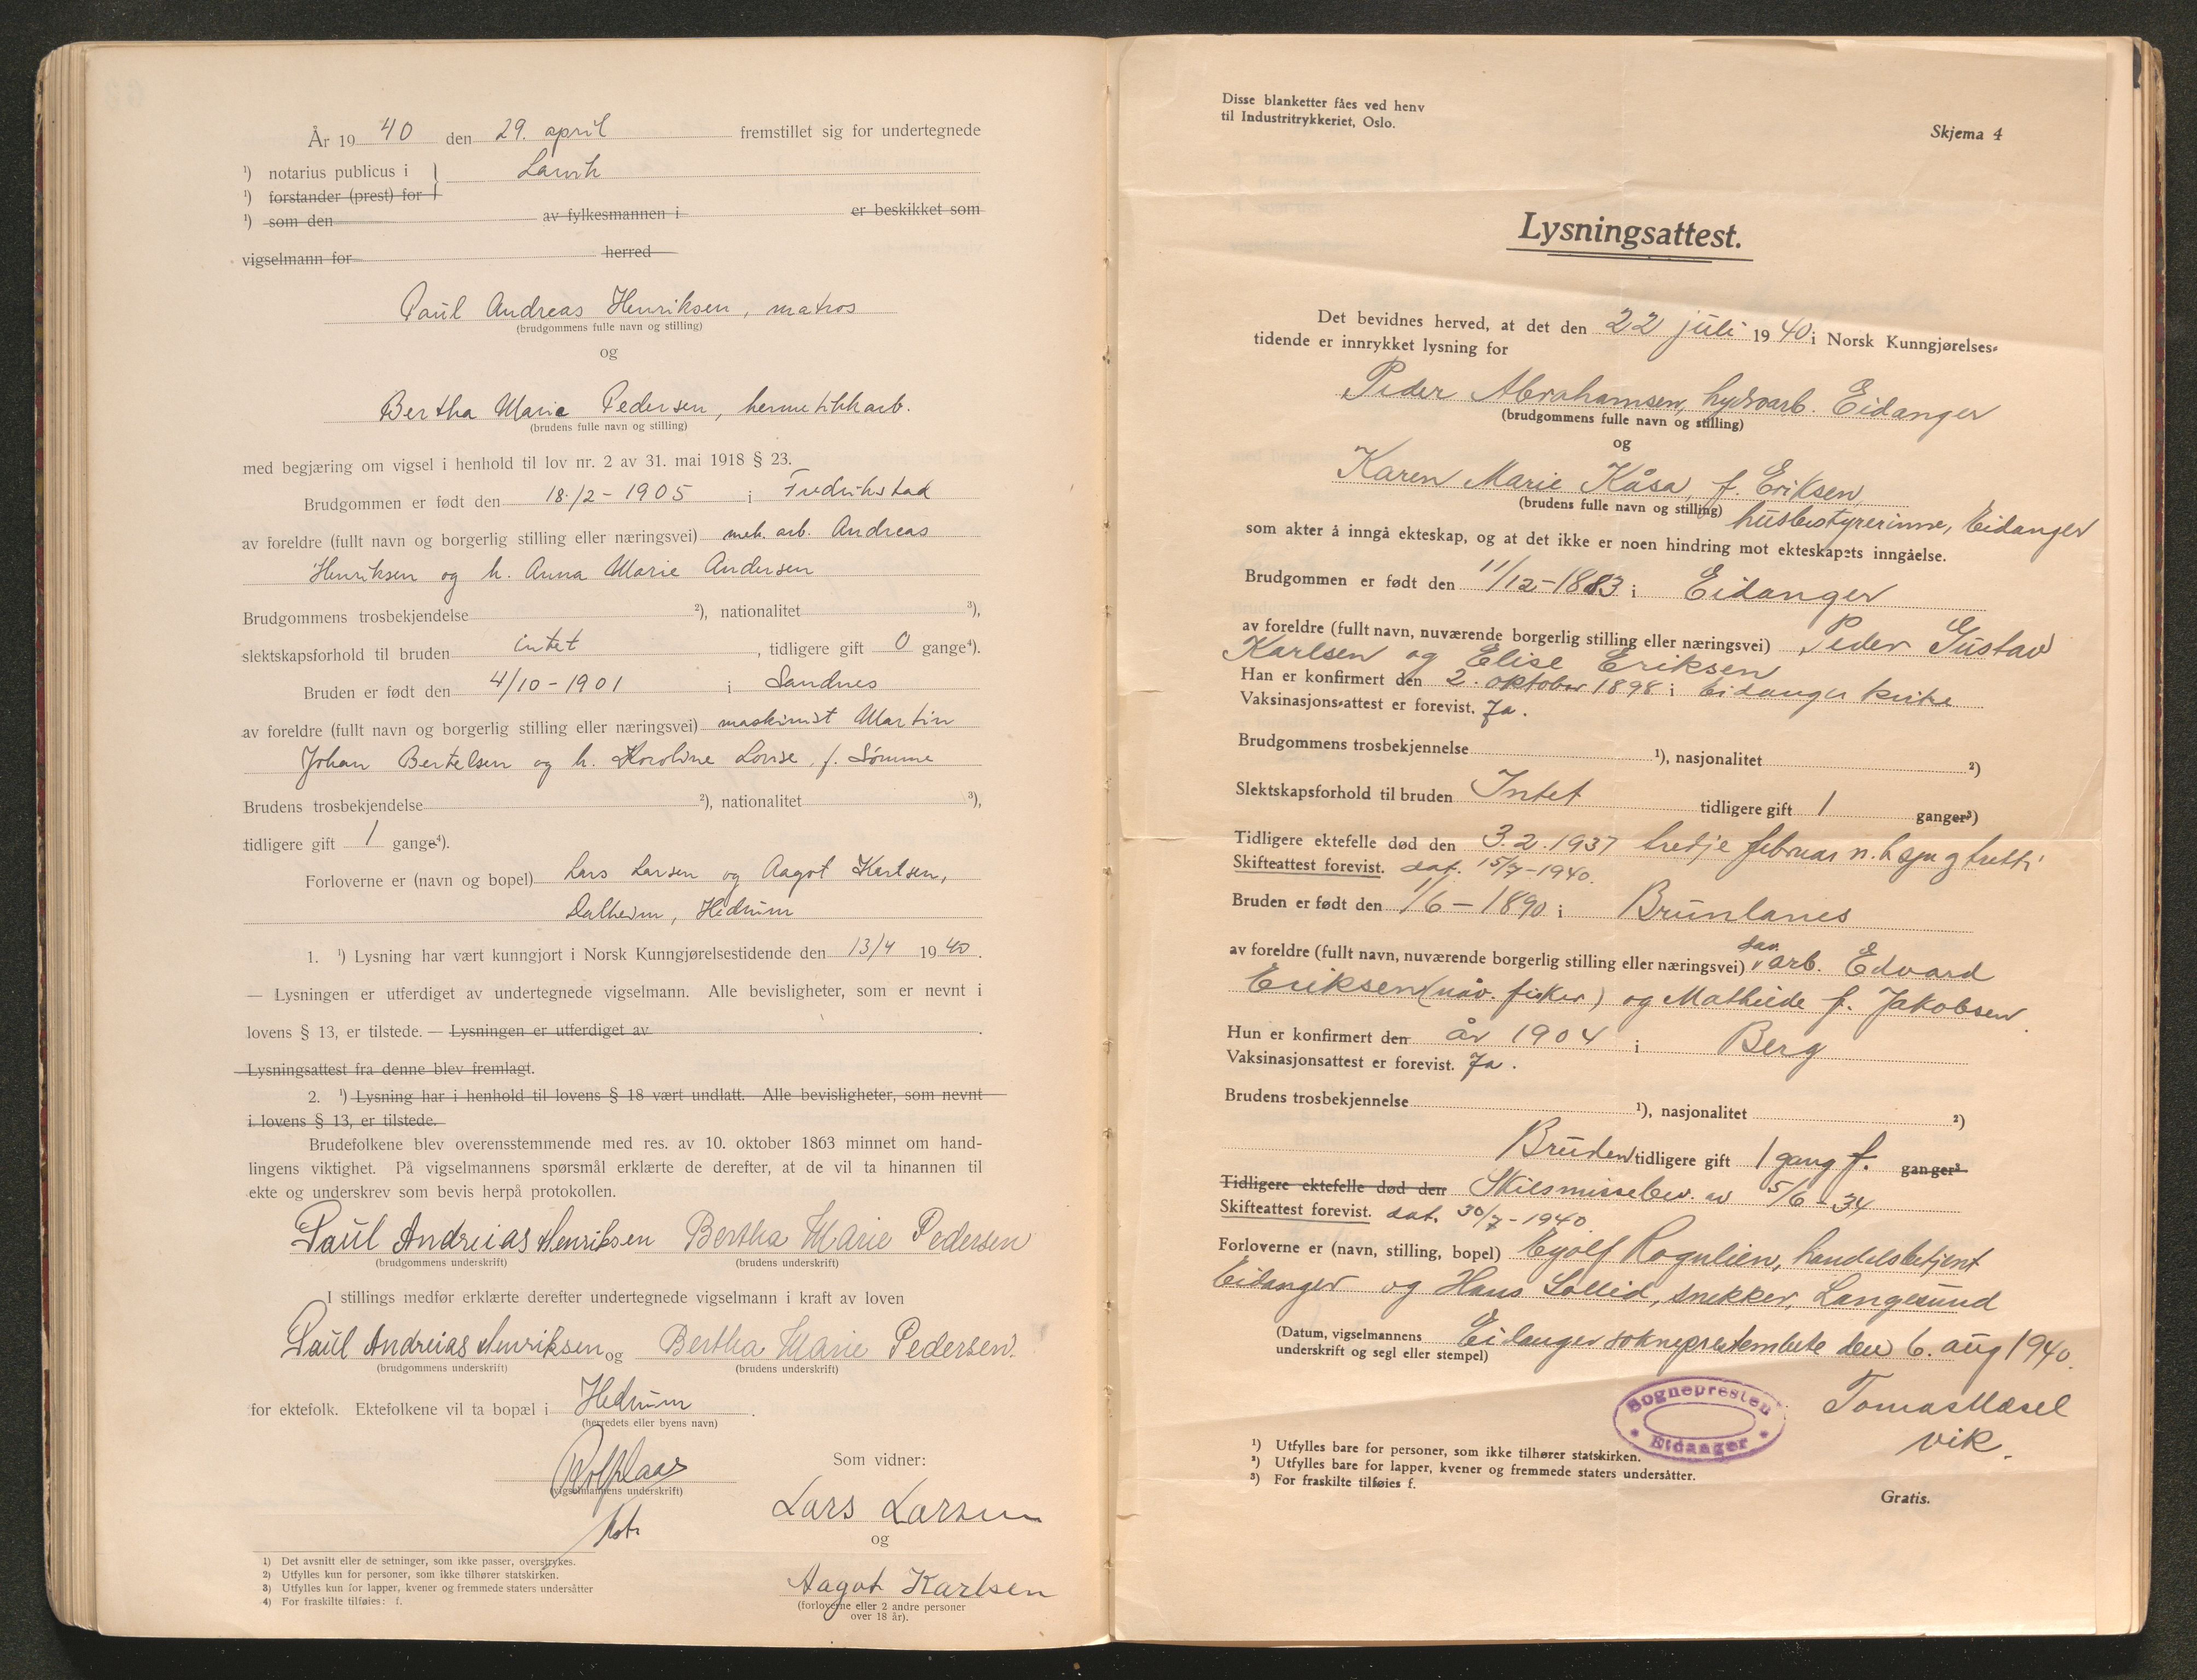 År 1940 den 29. april fremstillet sig for undertegnede
¹) notarius publicus i } Larvik
¹) forstander (prest) for
¹) som den av fylkesmannen i er beskikket som
vigselmann for herred
Paul Andreas Henriksen, matros
(brudgommens fulle navn og stilling)
og
Bertha Marie Pedersen, hermetikkarb.
(brudens fulle navn og stilling)
med begjæring om vigsel i henhold til lov nr. 2 av 31. mai 1918 § 23.
Brudgommen er født den 18/2 - 1905 i Fredrikstad
av foreldre (fullt navn og borgerlig stilling eller næringsvei) mek. arb. Andreas
Henriksen og h. Anna Marie Andersen
Brudgommens trosbekjendelse ²), nationalitet ³),
slektskapsforhold til bruden intet, tidligere gift 0 gange⁴).
Bruden er født den 4/10 - 1901 i Sandnes
av foreldre (fullt navn og borgerlig stilling eller næringsvei) maskinist Martin
Johan Bertelsen og h. Karoline Lovise, f. Sømme
Brudens trosbekjendelse ²), nationalitet ³),
tidligere gift 1 gange⁴).
Forloverne er (navn og bopel) Lars Larsen og Aagot Karlsen,
Dalheim, Hedrum
1. ¹) Lysning har vært kunngjort i Norsk Kunngjørelsestidende den 13/4 1940.
— Lysningen er utferdiget av undertegnede vigselmann. Alle bevisligheter, som er nevnt i
lovens § 13, er tilstede. — Lysningen er utferdiget av .
Lysningsattest fra denne blev fremlagt.
2. ¹) Lysning har i henhold til lovens § 18 vært undlatt. Alle bevisligheter, som nevnt
i lovens § 13, er tilstede.
Brudefolkene blev overensstemmende med res. av 10. oktober 1863 minnet om hand-
lingens viktighet. På vigselmannens spørsmål erklærte de derefter, at de vil ta hinannen til
ekte og underskrev som bevis herpå protokollen.
Paul Andreias Henriksen Bertha Marie Pedersen
(brudgommens underskrift) (brudens underskrift)
I stillings medfør erklærte derefter undertegnede vigselmann i kraft av loven
Paul Andreias Henriksen og Bertha Marie Pedersen.
(brudgommens underskrift) (brudens underskrift)
for ektefolk. Ektefolkene vil ta bopæl i Hedrum.
(herredets eller byens navn)
Som vidner:
(vigselmannens underskrift)
Lars Larsen
og
Aagot Karlsen
(forloverne eller 2 andre personer
over 18 år).
1) Det avsnitt eller de setninger, som ikke passer, overstrykes.
2) Utfylles kun for personer, som ikke tilhører statskirken.
3) Utfylles kun for lapper, kvener og fremmede staters undersåtter
4) For fraskilte tilføies: f.
Disse blanketter fåes ved henv
til Industritrykkeriet, Oslo.
Skjema 4
Lysningsattest.
Det bevidnes herved, at det den 22 juli 1940 i Norsk Kunngjørelses-
tidende er innrykket lysning for
Peder Abrahamsen, hydroarb. Eidanger
(brudgommens fulle navn og stilling)
og
Karen Marie Kåsa, f. Eriksen,
(brudens fulle navn og stilling) husbestyrerinne, Eidanger
som akter å inngå ekteskap, og at det ikke er noen hindring mot ekteskapets inngåelse.
Brudgommen er født den 11/12 - 1883 i Eidanger
av foreldre (fullt navn, nuværende borgerlig stilling eller næringsvei) Peder Gustav
Karlsen og Elise Eriksen
Han er konfirmert den 2. oktober 1898 i Eidanger kirke
Vaksinasjons-attest er forevist. Ja.
Brudgommens trosbekjennelse ¹), nasjonalitet ²)
Slektskapsforhold til bruden Intet tidligere gift 1 ganger³)
Tidligere ektefelle død den 3.2.1937 tredje februar n.h. syv og tretti
Skifteattest forevist. dat. 15/7-1940.
Bruden er født den 1/6 - 1890 i Brunlanes
av foreldre (fullt navn, nuværende borgerlig stilling eller næringsvei) dav. arb. Edvard
Eriksen (nåv. fisker) og Mathilde f. Jakobsen
Hun er konfirmert den år 1904 i Berg
Vaksinasjonsattest er forevist. Ja.
Brudens trosbekjennelse ¹), nasjonalitet ²)
Bruden tidligere gift 1 gang f. ganger³
Tidligere ektefelle død den Skilsmissebev. av 5/6 - 34
Skifteattest forevist. dat. 30/7 - 1940.
Forloverne er (navn, stilling, bopel) Eyolf Rognlien, handelsbetjent
Eidanger og Hans Sollid, snekker, Langesund
(Datum, vigselmannens Eidanger sokneprestembete den 6. aug 1940.
underskrift og segl eller stempel)
Sognepresten
Eidanger
Tomas Mæsel
vik.
¹) Utfylles bare for personer, som ikke tilhører statskirken.
²) Utfylles bare for lapper, kvener og fremmede staters undersåtter.
³) For fraskilte tilføies f.
Gratis.